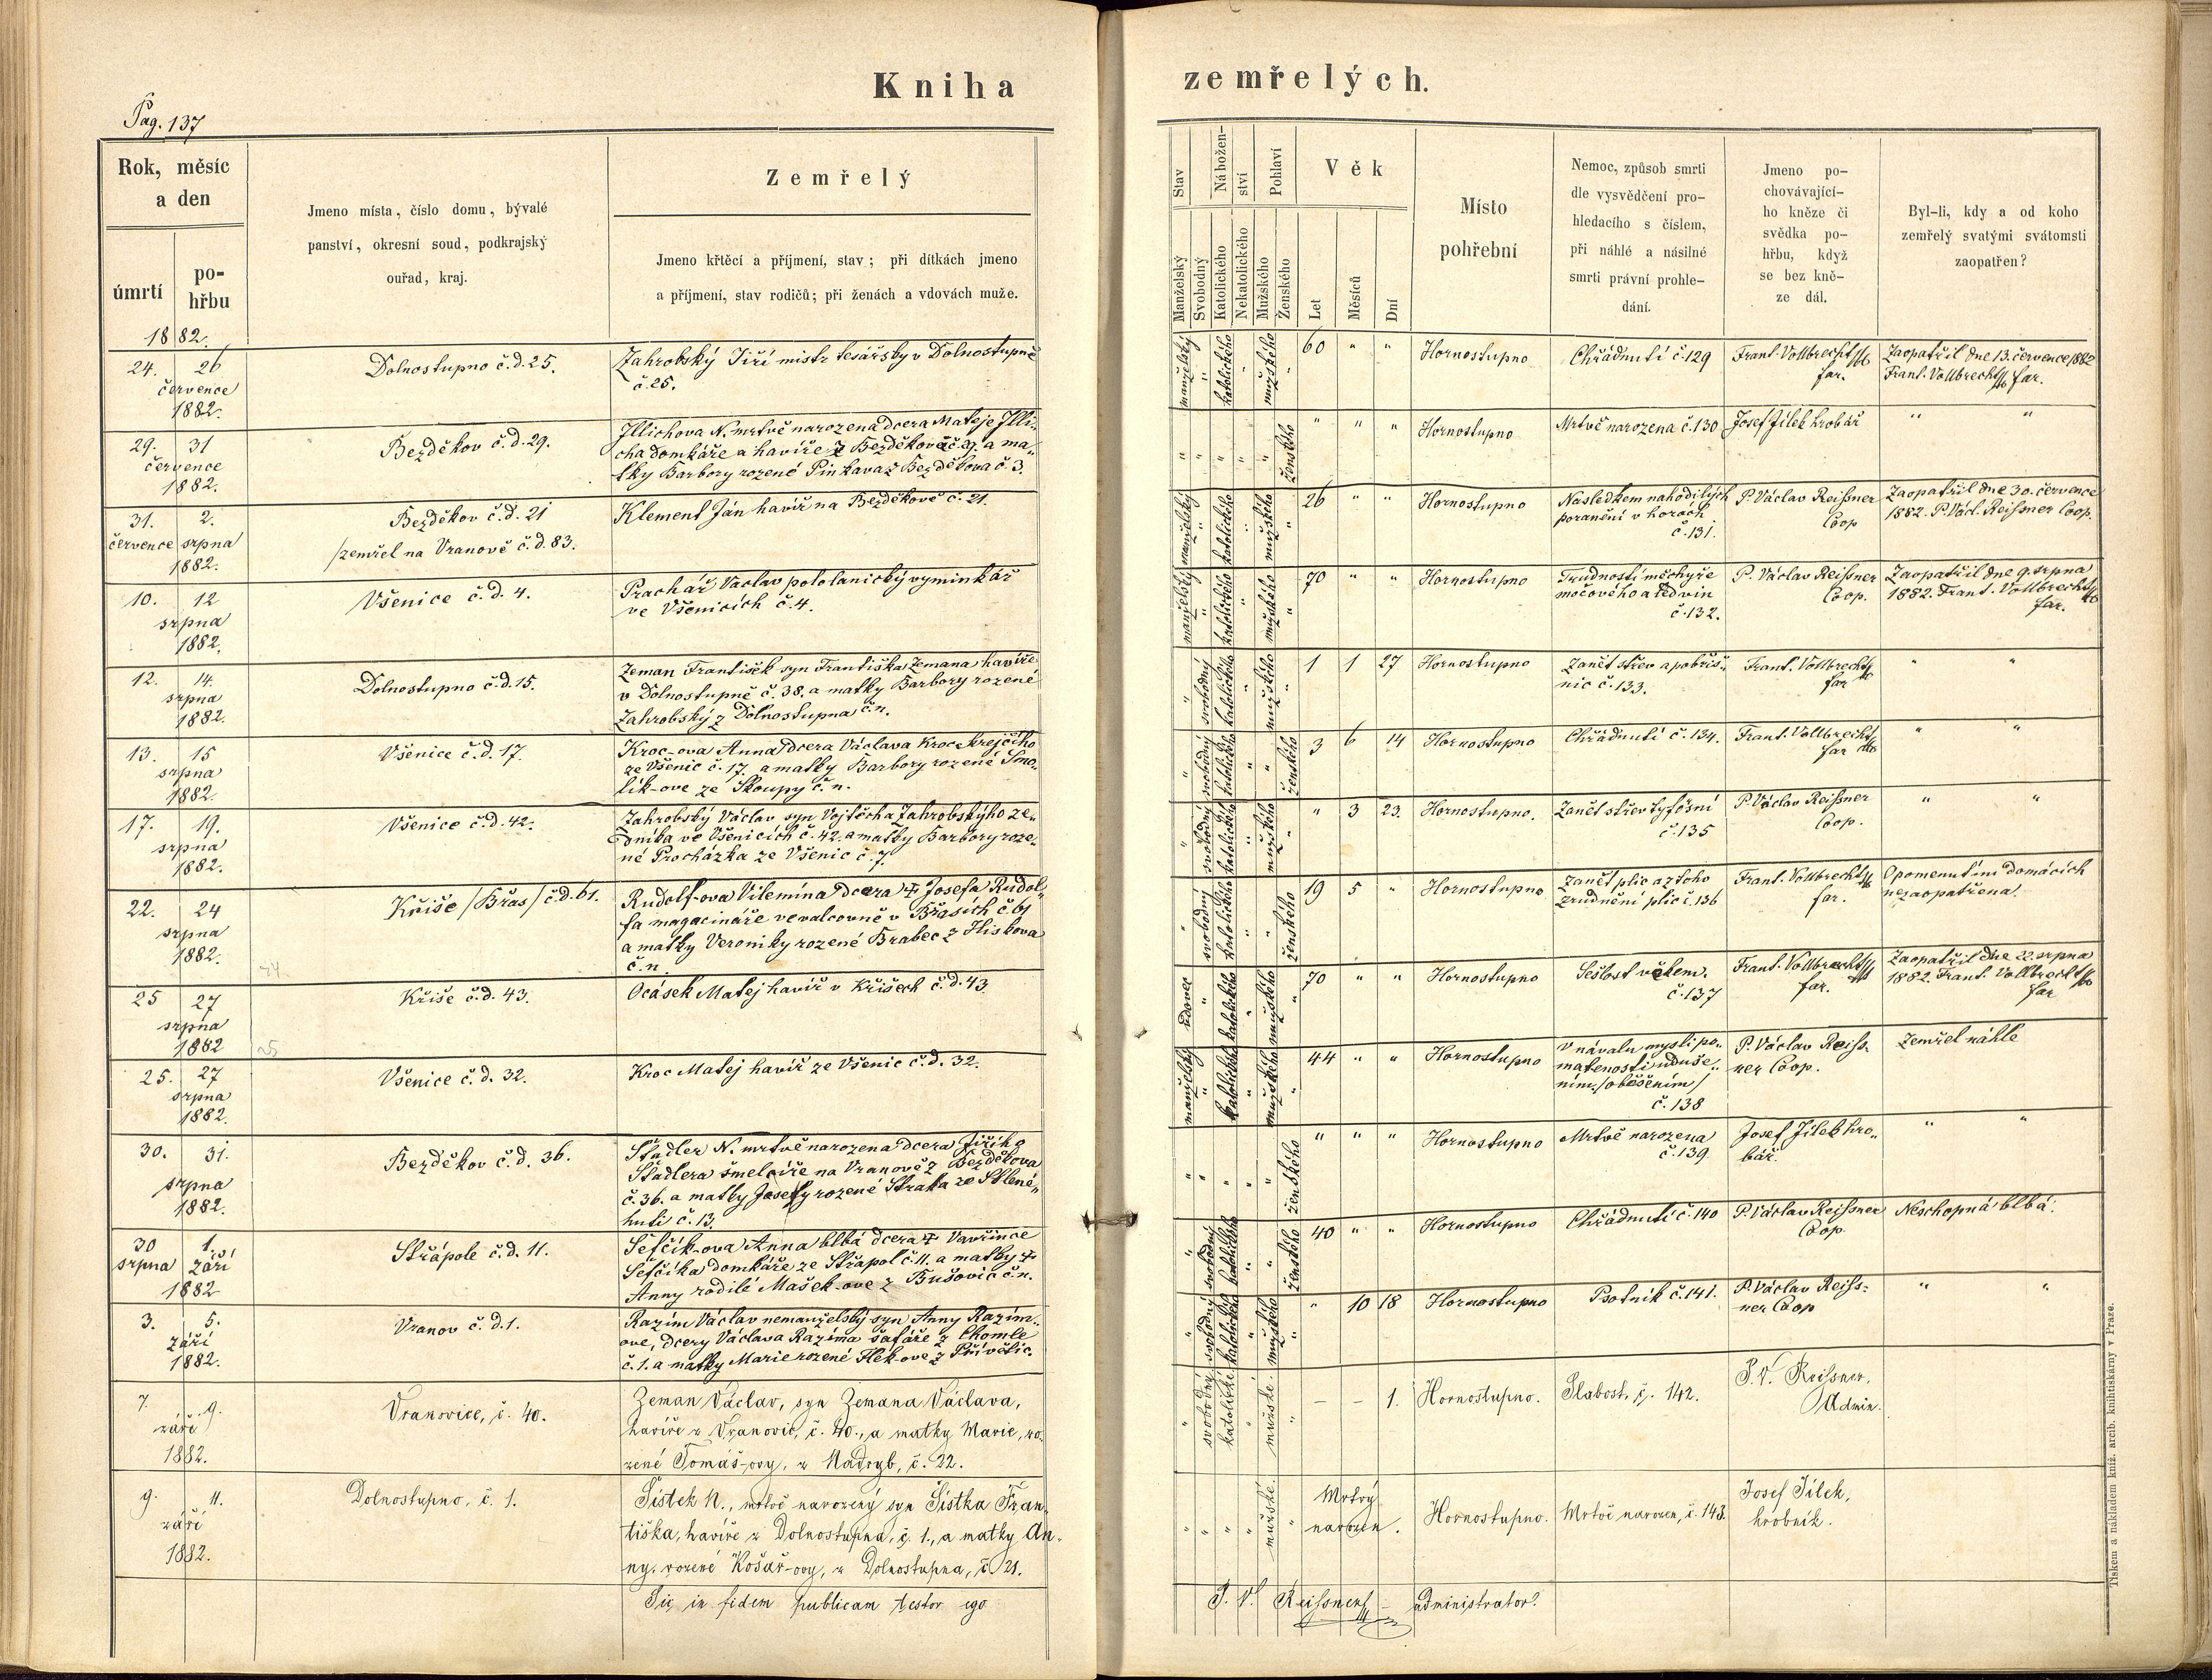 Kniha zemřelých.
Pag. 137
Rok, měsíc
a den
úmrtí
po-
hřbu
Jmeno místa, číslo domu, bývalé
panství, okresní soud, podkrajský
ouřad, kraj.
Zemřelý
Jmeno křtěcí a příjmení, stav; při dítkách jmeno
a příjmení, stav rodičů; při ženách a vdovách muže.
Stav
Manželský
Svobodný
Nábožen-
ství
Katolického
Nekatolického
Pohlaví
Mužského
Ženského
Věk
Let
Měsíců
Dní
Místo
pohřební
Nemoc, způsob smrti
dle vysvědčení pro-
hledacího s číslem,
při náhlé a násilné
smrti právní prohle-
dání.
Jmeno po-
chovávající-
ho kněze či
svědka po-
hřbu, když
se bez kně-
ze dál.
Byl-li, kdy a od koho
zemřelý svatými svátomsti
zaopatřen?
1882.
24. 26
července
1882.
Dolnostupno č.d. 25.
Zahrobský Jiří mistr tesářsky v Dolnostupně
č. 25.
manželský " katolického " mužského "
60 " "
Hornostupno
Chřádnutí č. 129
Frant. Vollbrecht
far.
Zaopatřil dne 13. července 1882
Frant. Vollbrecht far.
29. 31
července
1882.
Bezděkov č.d. 29.
Illichova N. mrtvě narozena dcera Mateje Illi-
cha domkáře a havíře z Bezděkova č. 29. a ma-
tky Barbory rozené Pinkava z Bezděkova č. 3.
" " " " " ženského
" " "
Hornostupno
Mrtvě narozena č. 130
Josef Jílek hrobář
" "
31. 2.
července srpna
1882.
Bezděkov č.d. 21
/zemřel na Vranově č.d. 83.
Klement Ján havíř na Bezděkově č. 21.
manželský " katolického " mužského "
26 " "
Hornostupno
Nasledkem nahodilých
poranění v horách
č. 131.
P. Václav Reißner
Coop
Zaopatřil dne 30. července
1882. P. Václ. Reißner Coop.
10. 12
srpna
1882.
Všenice č.d. 4.
Prachař Vaclav pololanický vyminkář
ve Všenicích č. 4.
manželský " katolického " mužského "
70 " "
Hornostupno
Trudností měchyře
močového a ledvin
č. 132.
P. Václav Reißner
Coop.
Zaopatřil dne 9. srpna
1882. Frant. Vollbrecht
far.
12. 14.
srpna
1882.
Dolnostupno č.d. 15.
Zeman František syn Františka Zemana havíře
v Dolnostupně č. 38. a matky Barbory rozené
Zahrobský z Dolnostupna č. n.
" svobodný katolického " mužského "
1 1 27
Hornostupno
Zanět střev a pobřiš-
nic č. 133.
Frant. Vollbrecht
far
" "
13. 15
srpna
1882.
Všenice č.d. 17.
Kroc-ova Anna dcera Václava Kroc krejčiho
ze Všenic č. 17. a matky Barbory rozené Smo-
lik-ove ze Skoupy č. n.
" svobodný katolického " " ženského
3 6 14
Hornostupno
Chřádnutí č. 134.
Frant. Vollbrecht
far
" "
17. 19.
srpna
1882.
Všenice č.d. 42.
Zahrobský Václav syn Vojtěcha Zahrobskýho ze-
dníka ve Všenicích č. 42. a matky Barbory roze-
né Procházka ze Všenic č. 7.
" svobodný katolického " mužského "
" 3 23.
Hornostupno.
Zanět střev tyfósní
č. 135
P. Václav Reißner
Coop.
" "
22. 24
srpna
1882.
Kříše /Břas/ č.d. 61.
Rudolf-ova Vilemína dcera ‡ Josefa Rudol-
fa magacináře ve valcovně v Břasích č. 61
a matky Veroniky rozené Brabec z Hliskova
č. n.
" svobodný katolického " " ženského
19 5 "
Hornostupno
Zanět plic a z toho
zrudnění plic č. 136
Frant. Vollbrecht
far.
Opomenutím domácích
nezaopatřena.
25 27
srpna
1882
Kříše č.d. 43.
Ocásek Matej havíř v Kříšech č.d. 43.
vdovec " katolického " mužského "
70 " "
Hornostupno
Sešlost věkem.
č. 137
Frant. Vollbrecht
far.
Zaopatřil dne 22. srpna
1882. Frant. Vollbrecht
far
25. 27
srpna
1882.
Všenice č.d. 32.
Kroc Matej havíř ze Všenic č.d. 32.
manželský " katolického " mužského "
44 " "
Hornostupno
V návalu mysli po-
matenosti uduše-
ním /oběšením/
č. 138
P. Václav Reiss-
ner Coop.
Zemřel náhle
30. 31.
srpna
1882.
Bezděkov č.d. 36.
Stadler N. mrtvě narozena dcera Jiřího
Stadlera šmelcíře na Vranově z Bezděkova
č. 36. a matky Josefy rozené Straka ze Sklené-
huti č. 13.
" " " " " ženského
" " "
Hornostupno
Mrtvě narozena
č. 139
Josef Jílek hro-
bář.
" "
30 1.
srpna září
1882
Střápole č.d. 11.
Šefčík-ova Anna blbá dcera ‡ Vavřince
Šefčíka domkáře ze Střápol č. 11. a matky ‡
Anny rodilé Mašek-ove z Bušovic č. n.
" svobodný katolického " " ženského
40 " "
Hornostupno
Chřádnutí č. 140
P. Václav Reißner
Coop.
Neschopná blbá.
3. 5.
září
1882.
Vranov č.d. 1.
Razím Václav nemanželský syn Anny Razím-
ove, dcery Václava Razíma šafáře z Chomle
č. 1. a matky Marie rozené Flek-ove z Přívětic.
" svobodný katolického " mužského "
" 10 18
Hornostupno
Psotník č. 141.
P. Václav Reiss-
ner Coop
" "
7. 9.
září
1882.
Vranovice, č. 40.
Zeman Václav, syn Zemana Václava,
havíře z Vranovic, č. 40., a matky Marie, ro-
zené Tomáš-ovy, z Nadryb, č. 22.
" svobodný katolické. " mužské. "
– – 1.
Hornostupno.
Slabost, č. 142.
P. V. Reißner,
Admin.
9. 11.
září
1882.
Dolnostupno, č. 1.
Šístek N., mrtvě narozený syn Šístka Fran-
tiška, havíře z Dolnostupna, č. 1., a matky An-
ny, rozené Košař-ovy, z Dolnostupna, č. 21.
" " " " mužské. "
Mrtvý
narozen.
Hornostupno.
Mrtvě narozen, č. 143.
Josef Jílek,
hrobník.
Sic in fidem publicam testor ego P. V. Reißner – administrator.
Tiskem a nákladem kníž. arcib. knihtiskárny v Praze.